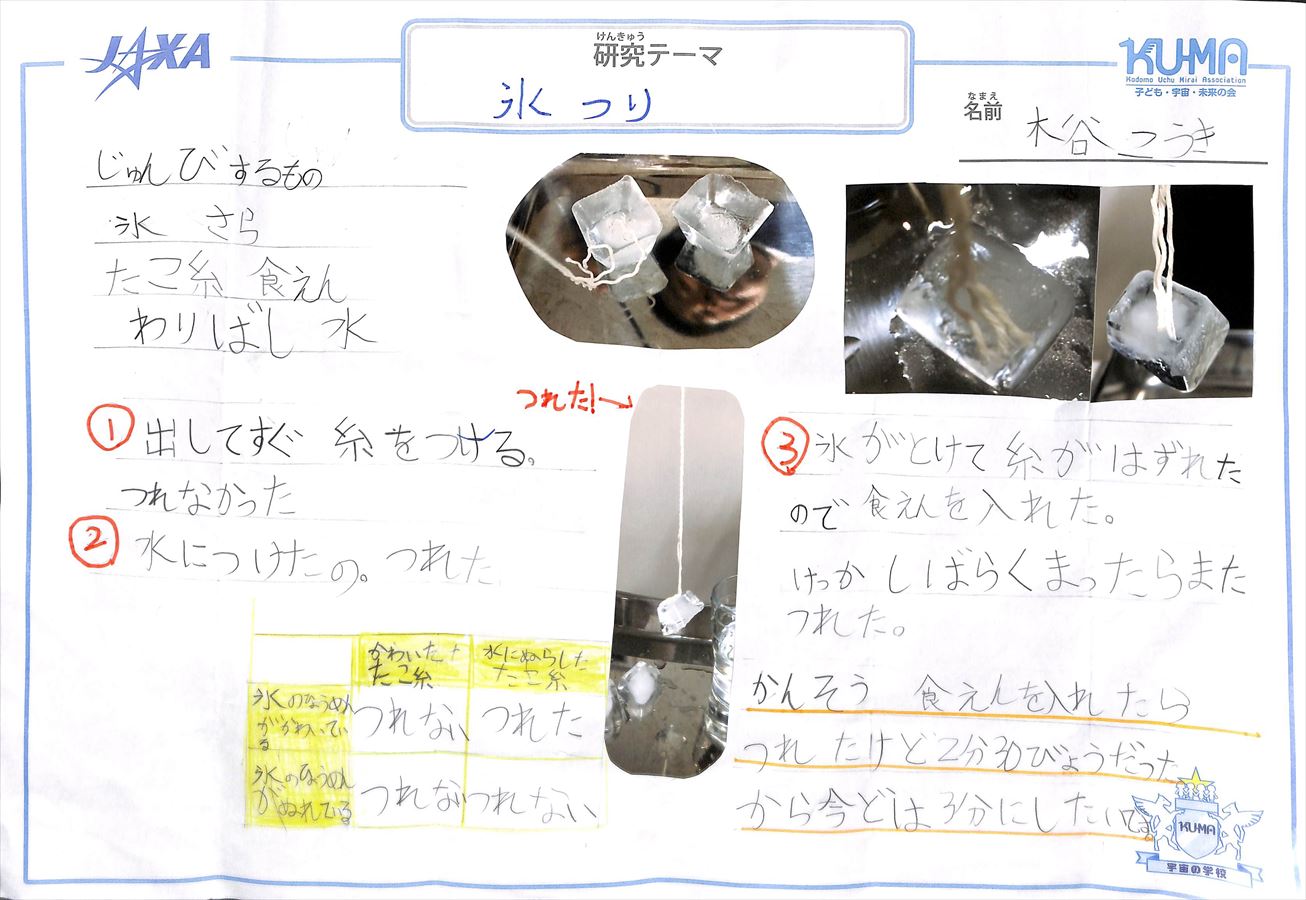 JAXA
けんきゅう
研究テーマ
氷つり
KU-MA
Kodomo Uchu Mirai Association
子ども・宇宙・未来の会
なまえ
名前
木谷 こうき
じゅんびするもの
氷 さら
たこ糸 食えん
わりばし 水
① 出してすぐ 糸をつける。
つれなかった
② 水につけたの。つれた
つれた!→
かわいた
たこ糸
水にぬらした
たこ糸
氷のひょうめん
がかわいてい
る
つれない
つれた
氷のひょうめん
がぬれてる
つれない
つれない
③ 氷がとけて糸がはずれた
ので食えんを入れた。
けっか しばらくまったらまた
つれた。
かんそう 食えんを入れたら
つれたけど2分30びょうだった
から今どは3分にしたいです。
KUMA
宇宙の学校